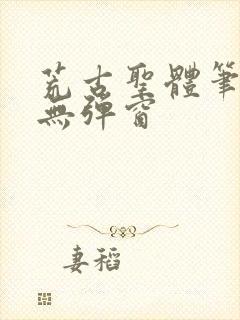 荒古聖體筆
無彈窗
妻稻